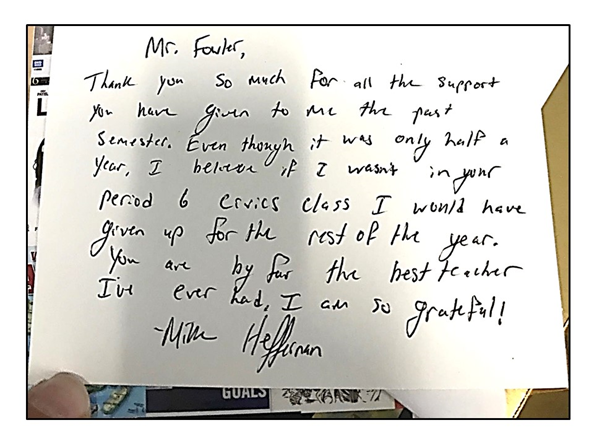 Mr. Fowler,
Thank you so much for all the support
you have given to me the past
semester. Even though it was only half a
year, I believe if I wasn't in your
period 6 civics class I would have
given up for the rest of the year.
You are by far the best teacher
I've ever had, I am so grateful!
-Mike Heffernan
GOALS